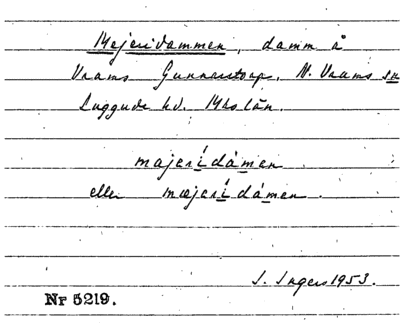 Mejeridammen, damm å
Vrams Gunnarstorp, N. Vrams sn
Luggude hd. Mhs län.
majerídámen
eller mæjerídámen.
I. Ingers 1953.
Nr 5219.